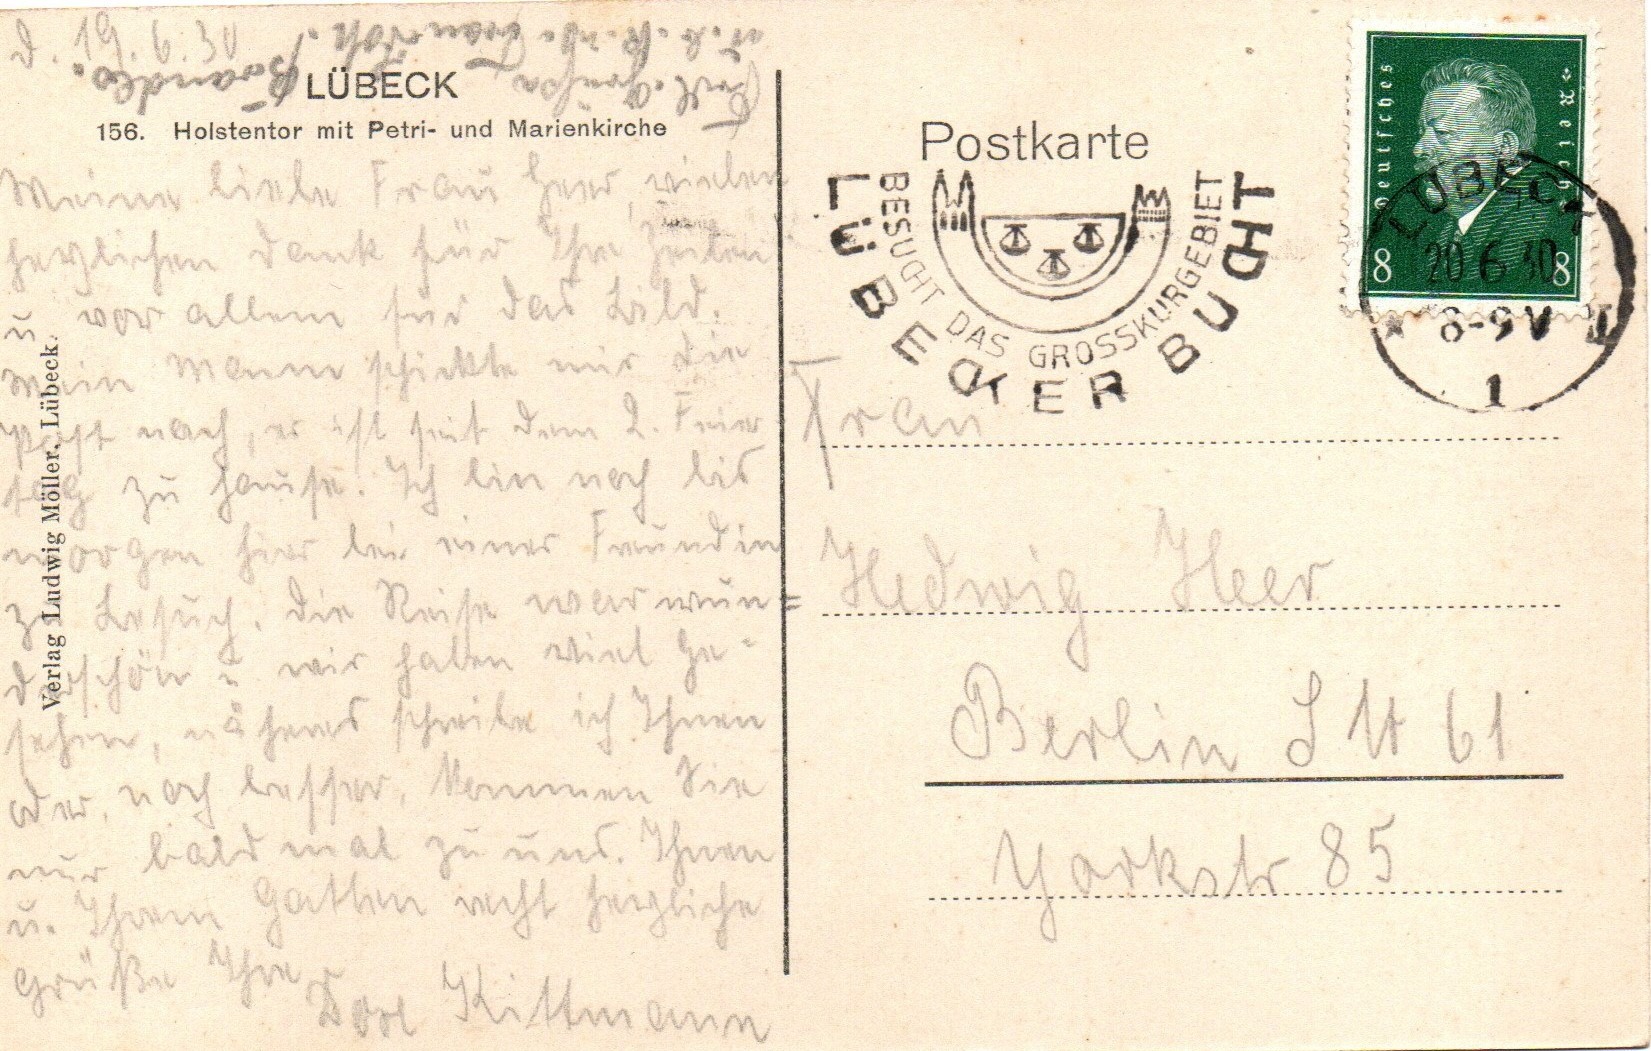 d. 19.6.30
LÜBECK
156. Holstentor mit Petri- und Marienkirche
Meine liebe Frau Heer, vielen
herzlichen Dank für Ihre Zeilen
u. vor allem für das Bild.
Mein Mann schickte mir die
Post nach, er ist seit dem 2. Feier-
tag zu Hause. Ich bin noch bis
morgen hier bei einer Freundin
zu Besuch. Die Reise war wun=
derschön u wir haben viel ge-
sehen, näheres schreibe ich Ihnen
oder, noch besser, kommen Sie
nur bald mal zu uns. Ihnen
u. Ihrem Gatten recht herzliche
Grüße Ihre
Kittmann
Frdl. Grüße
Frau
Brandes.
Verlag Ludwig Möller, Lübeck.
Postkarte
LÜBECKER BUCHT
BESUCHT DAS GROSSKURGEBIET
Deutsches Reich
8 8
LÜBECK
20.6.30
8-9 V
1
Frau
Hedwig Heer
Berlin SW 61
Yorkstr 85